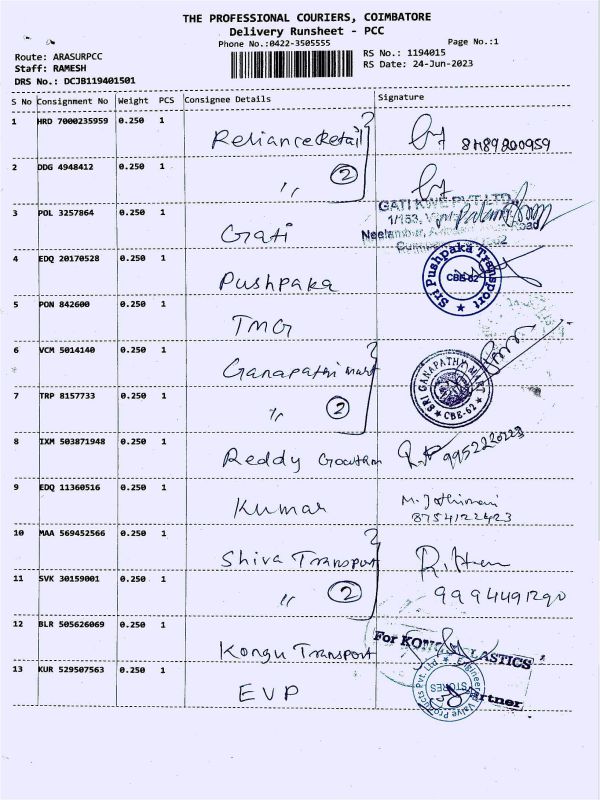 THE PROFESSIONAL COURIERS, COIMBATORE
Delivery Runsheet - PCC
Phone No.:0422-3505555
Page No.:1
Route: ARASURPCC
Staff: RAMESH
DRS No.: DCJB119401501
RS No.: 1194015
RS Date: 24-Jun-2023
S No Consignment No Weight PCS Consignee Details Signature
1 HRD 7000235959 0.250 1 Reliance Retail
2 DDG 4948412 0.250 1 〃 2
3 POL 3257864 0.250 1 Gati GATI KWE PVT LTD.,
1/153,
Neelambur,
4 EDQ 20170528 0.250 1 Pushpaka Sri Pushpaka Transport CBE-62
5 PON 842600 0.250 1 TMG
6 VCM 5014140 0.250 1 Ganapathi Mart
7 TRP 8157733 0.250 1 〃 2 SRI GANAPATHY MART CBE-62
8 IXM 503871948 0.250 1 Reddy Gowtham 9952220223
9 EDQ 11360516 0.250 1 Kumar M. Jothimani
8754122423
10 MAA 569452566 0.250 1 Shiva Transport
11 SVK 30159001 0.250 1 〃 2 9994491290
12 BLR 505626069 0.250 1 Kongu Transport For KONGU PLASTICS
13 KUR 529507563 0.250 1 EVP Partner
Engineered Valve Products Pvt. Ltd STORES